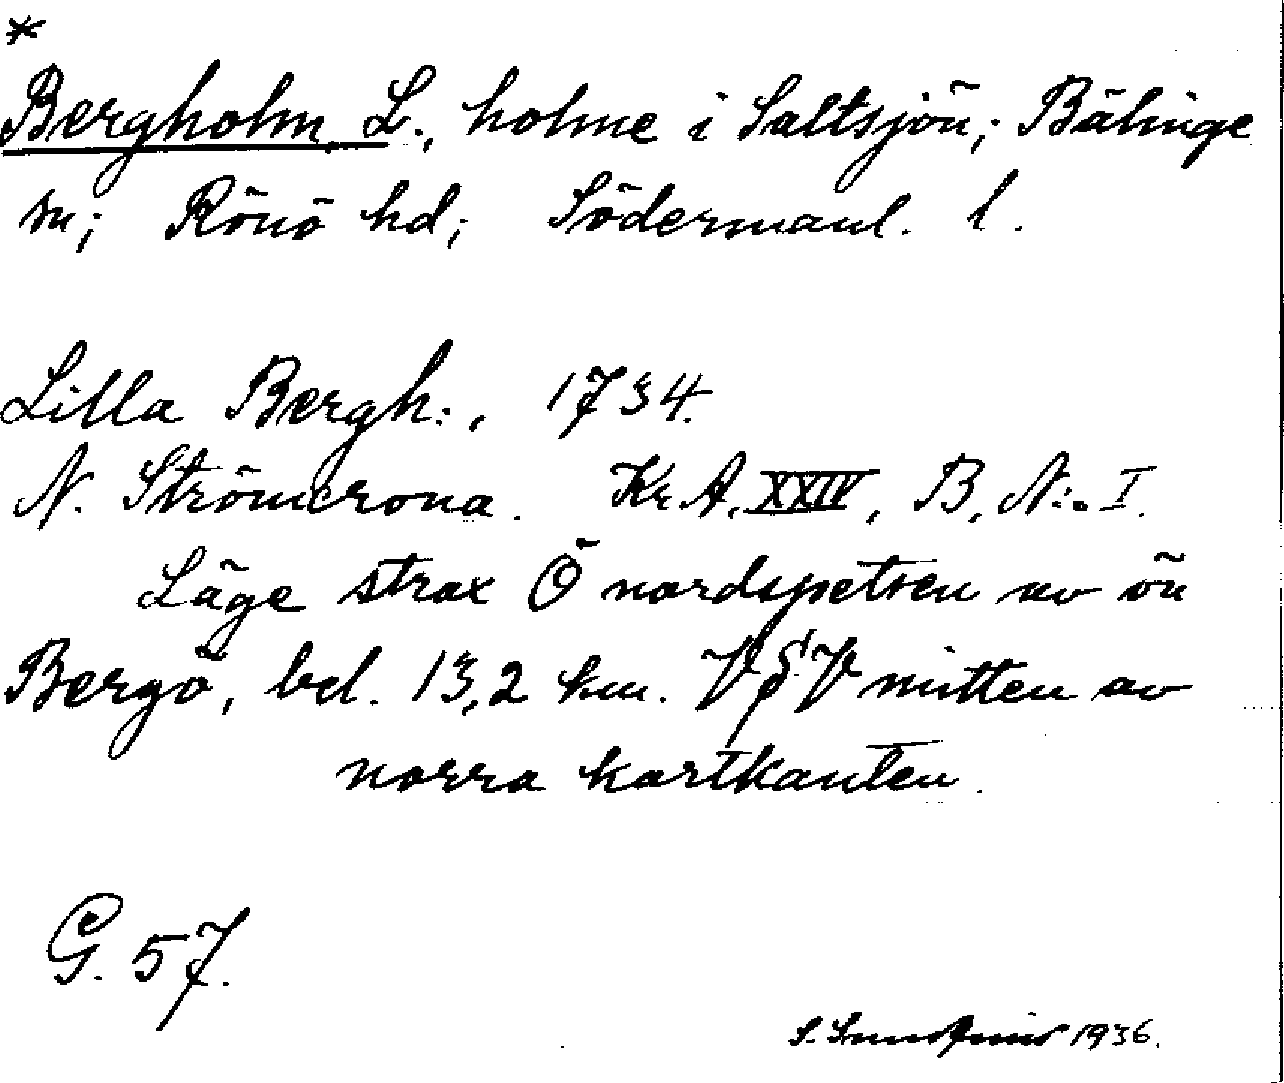 *
Bergholm, L., holme i Saltsjön; Bälinge
sn; Rönö hd; Södermanl. l.
Lilla Bergh:, 1734.
N. Strömcrona. Kr.A. XXIV, B, N:. I.
Läge strax Ö nordspetsen av ön
Bergö, bel. 13,2 km. VSV mitten av
norra kartkanten.
G. 57.
S. 1936.